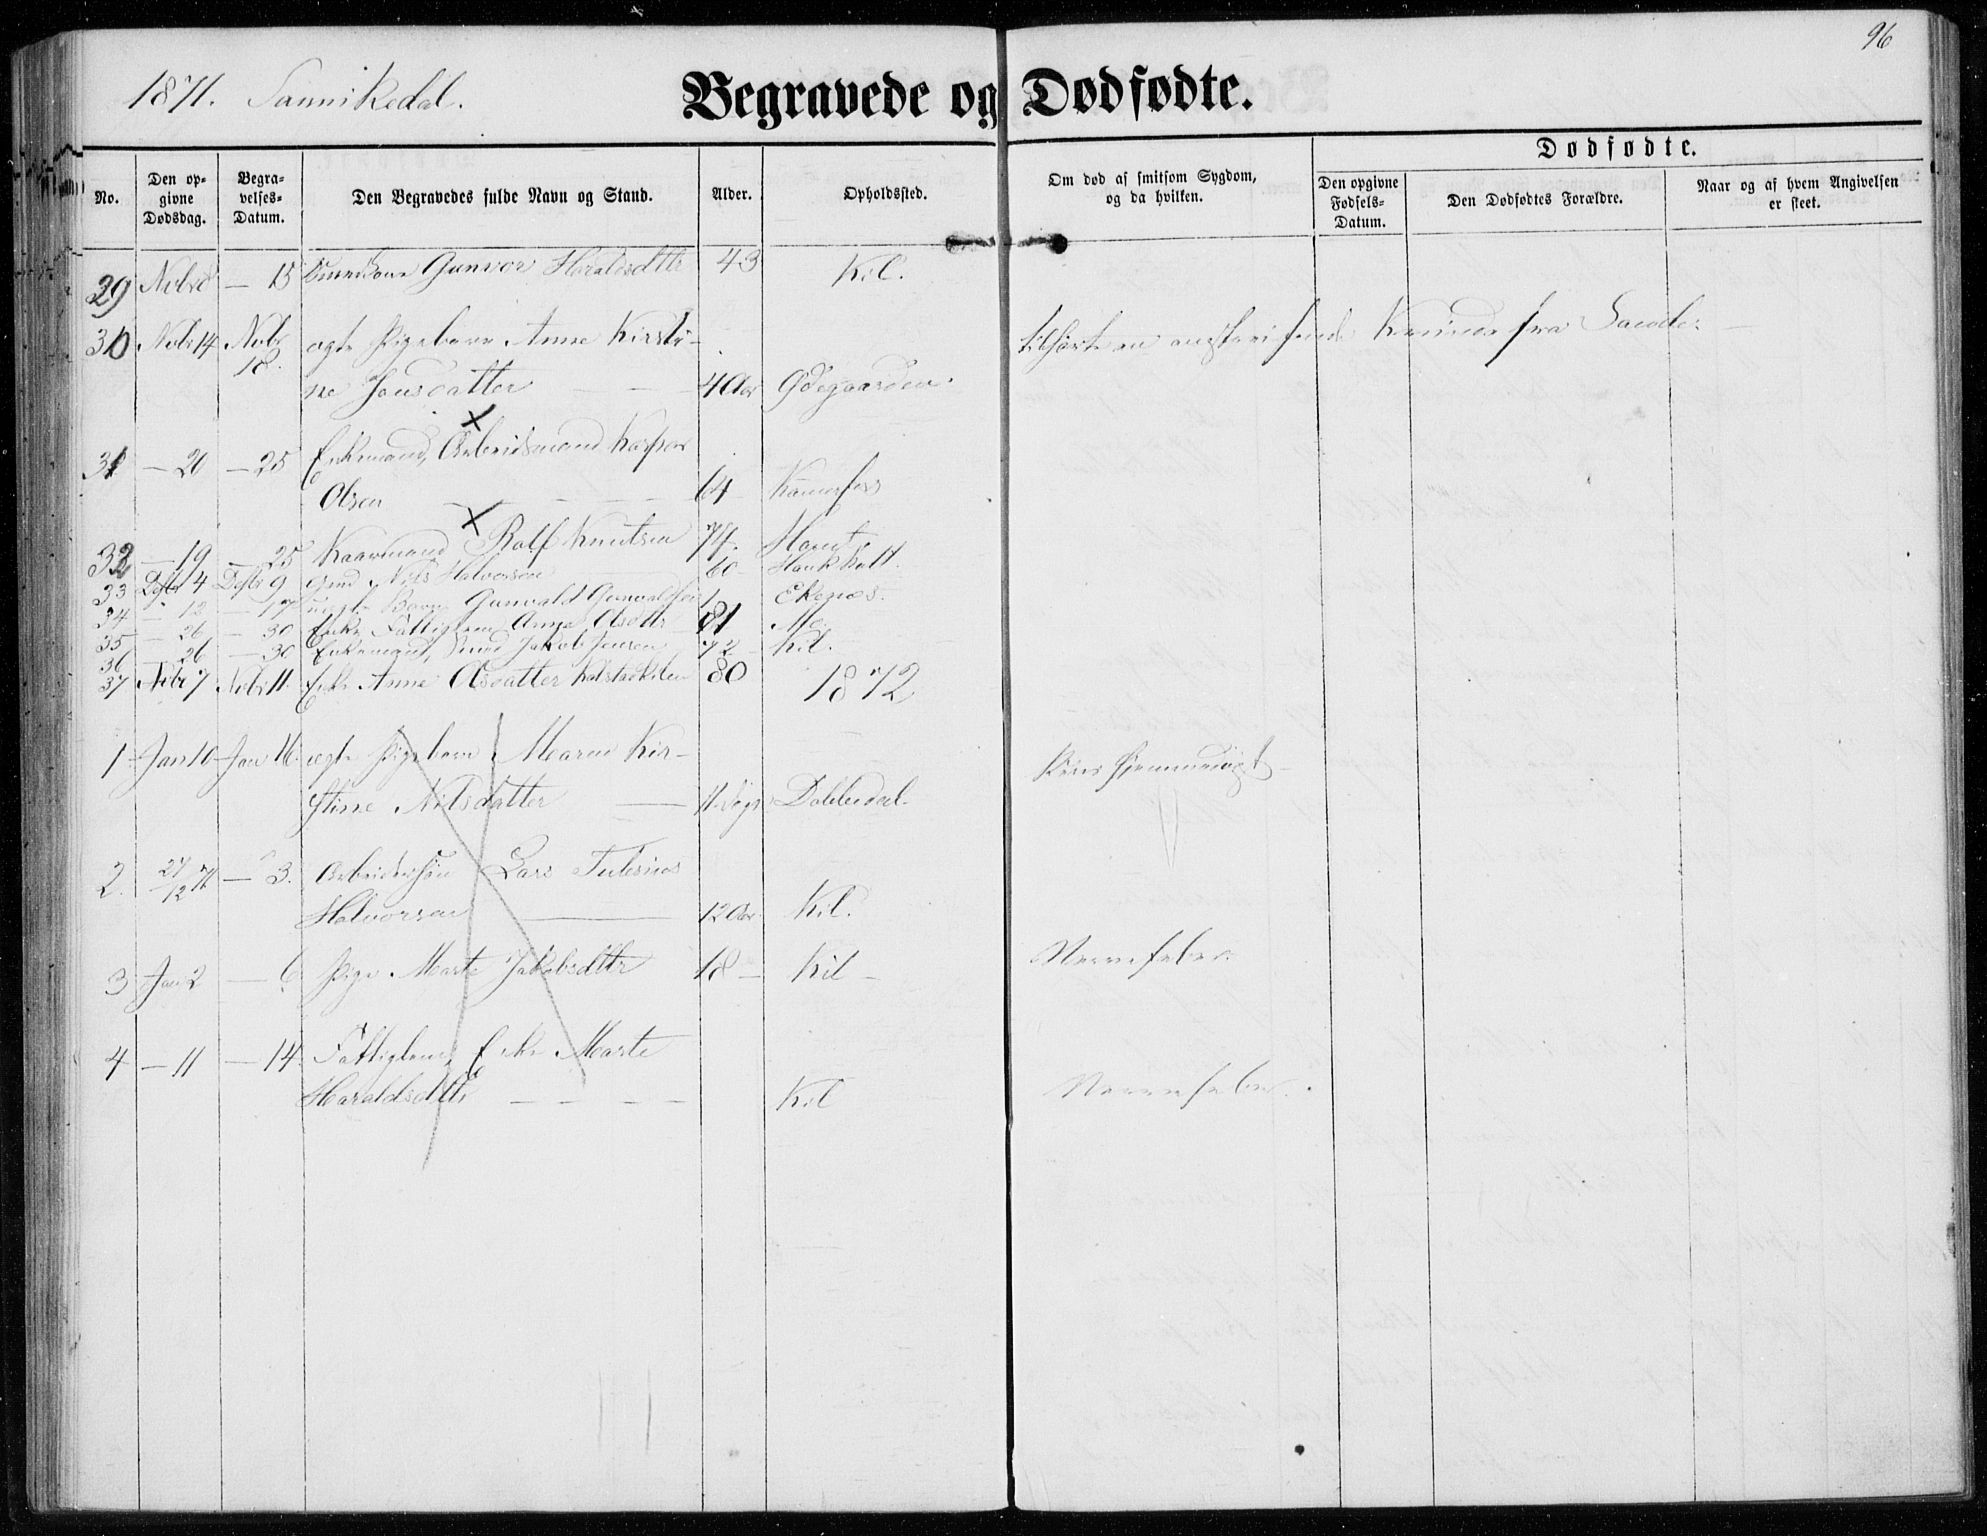 96
1871. Sannikedal.
Begravede og Dødfødte.
No.
Den op-
givne
Dødsdag.
Begra-
velses-
Datum.
Den Begravedes fulde Navn og Stand.
Alder.
Opholdssted.
Om død af smitsom Sygdom,
og da hvilken.
Dødfødte.
Den opgivne
Fødsels-
Datum.
Den Dødfødtes Forældre.
Naar og af hvem Angivelsen
er skeet.
29 Nvbr 8 — 15 Gunvor Haraldsdttr 43 Kil.
30 Nvbr 14 Nvbr 18. ægte Pigebarn Anne Kirsti-
ne Jensdatter — — 4 Aar Ødegaarden.
tilhørte en Kvinde fra
31 — 20 — 25 Enkemand, Arbeidsmand Kasper
Olsen — — — 64
32 — 19 — 25 Kaarmand Rolf Knutsen 74.
33 Dcbr 4 Dcbr 9 Gmd Nils Halvorsen 60
34 — 12 — 17 uægte Barn Gunvald Gunvaldsen 1 Ekenæs.
35 — 26 — 30 Enke Fattiglem Anne Olsdttr 81 Mo.
36 — 26 — 30 Enkemand, Smed Jakob Jensen 72 Kil.
37 Nvbr 7 Nvbr 11. Enke Anne Olsdatter 80
1872
1 Jan 10 Jan 16. ægte Pigebarn Maren Kir-
stine Nilsdatter — 11 Dage Dobbedal.
hjemmedøbt
2. 27/12 71 — 3. Lars
Halvorsen — 12 Aar Kil.
3 Jan 2 — 6 Pige Marte Jakobsdttr 18 — Kil —
Nervefeber.
4 — 11 — 14. Fattiglem, Enke Marte
Haraldsdttr — — — — Kil
Nervefeber.